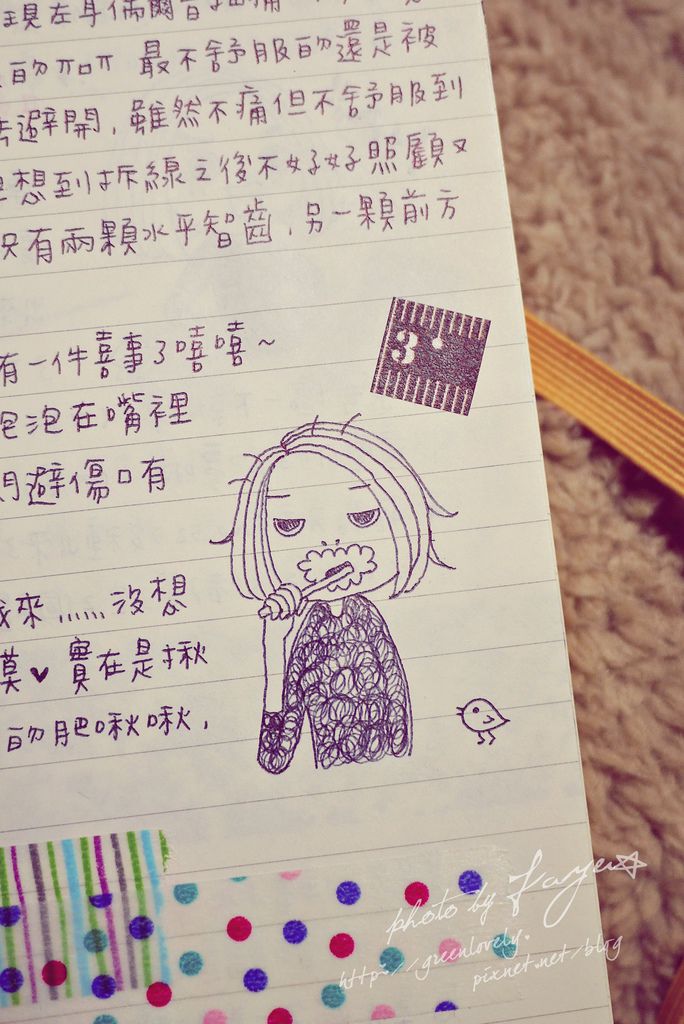 現左耳
的ㄇㄇ 最不舒服的還是被
去避開，雖然不痛但不舒服到
想到拆線之後不好好照顧又
只有兩顆水平智齒，另一顆前方
有一件喜事了嘻嘻～
泡泡在嘴裡
避傷口有
我來......沒想
漠♥ 實在是揪
的肥啾啾，
3
photo by Faye☆
http://greenlovely.
pixnet.net/blog